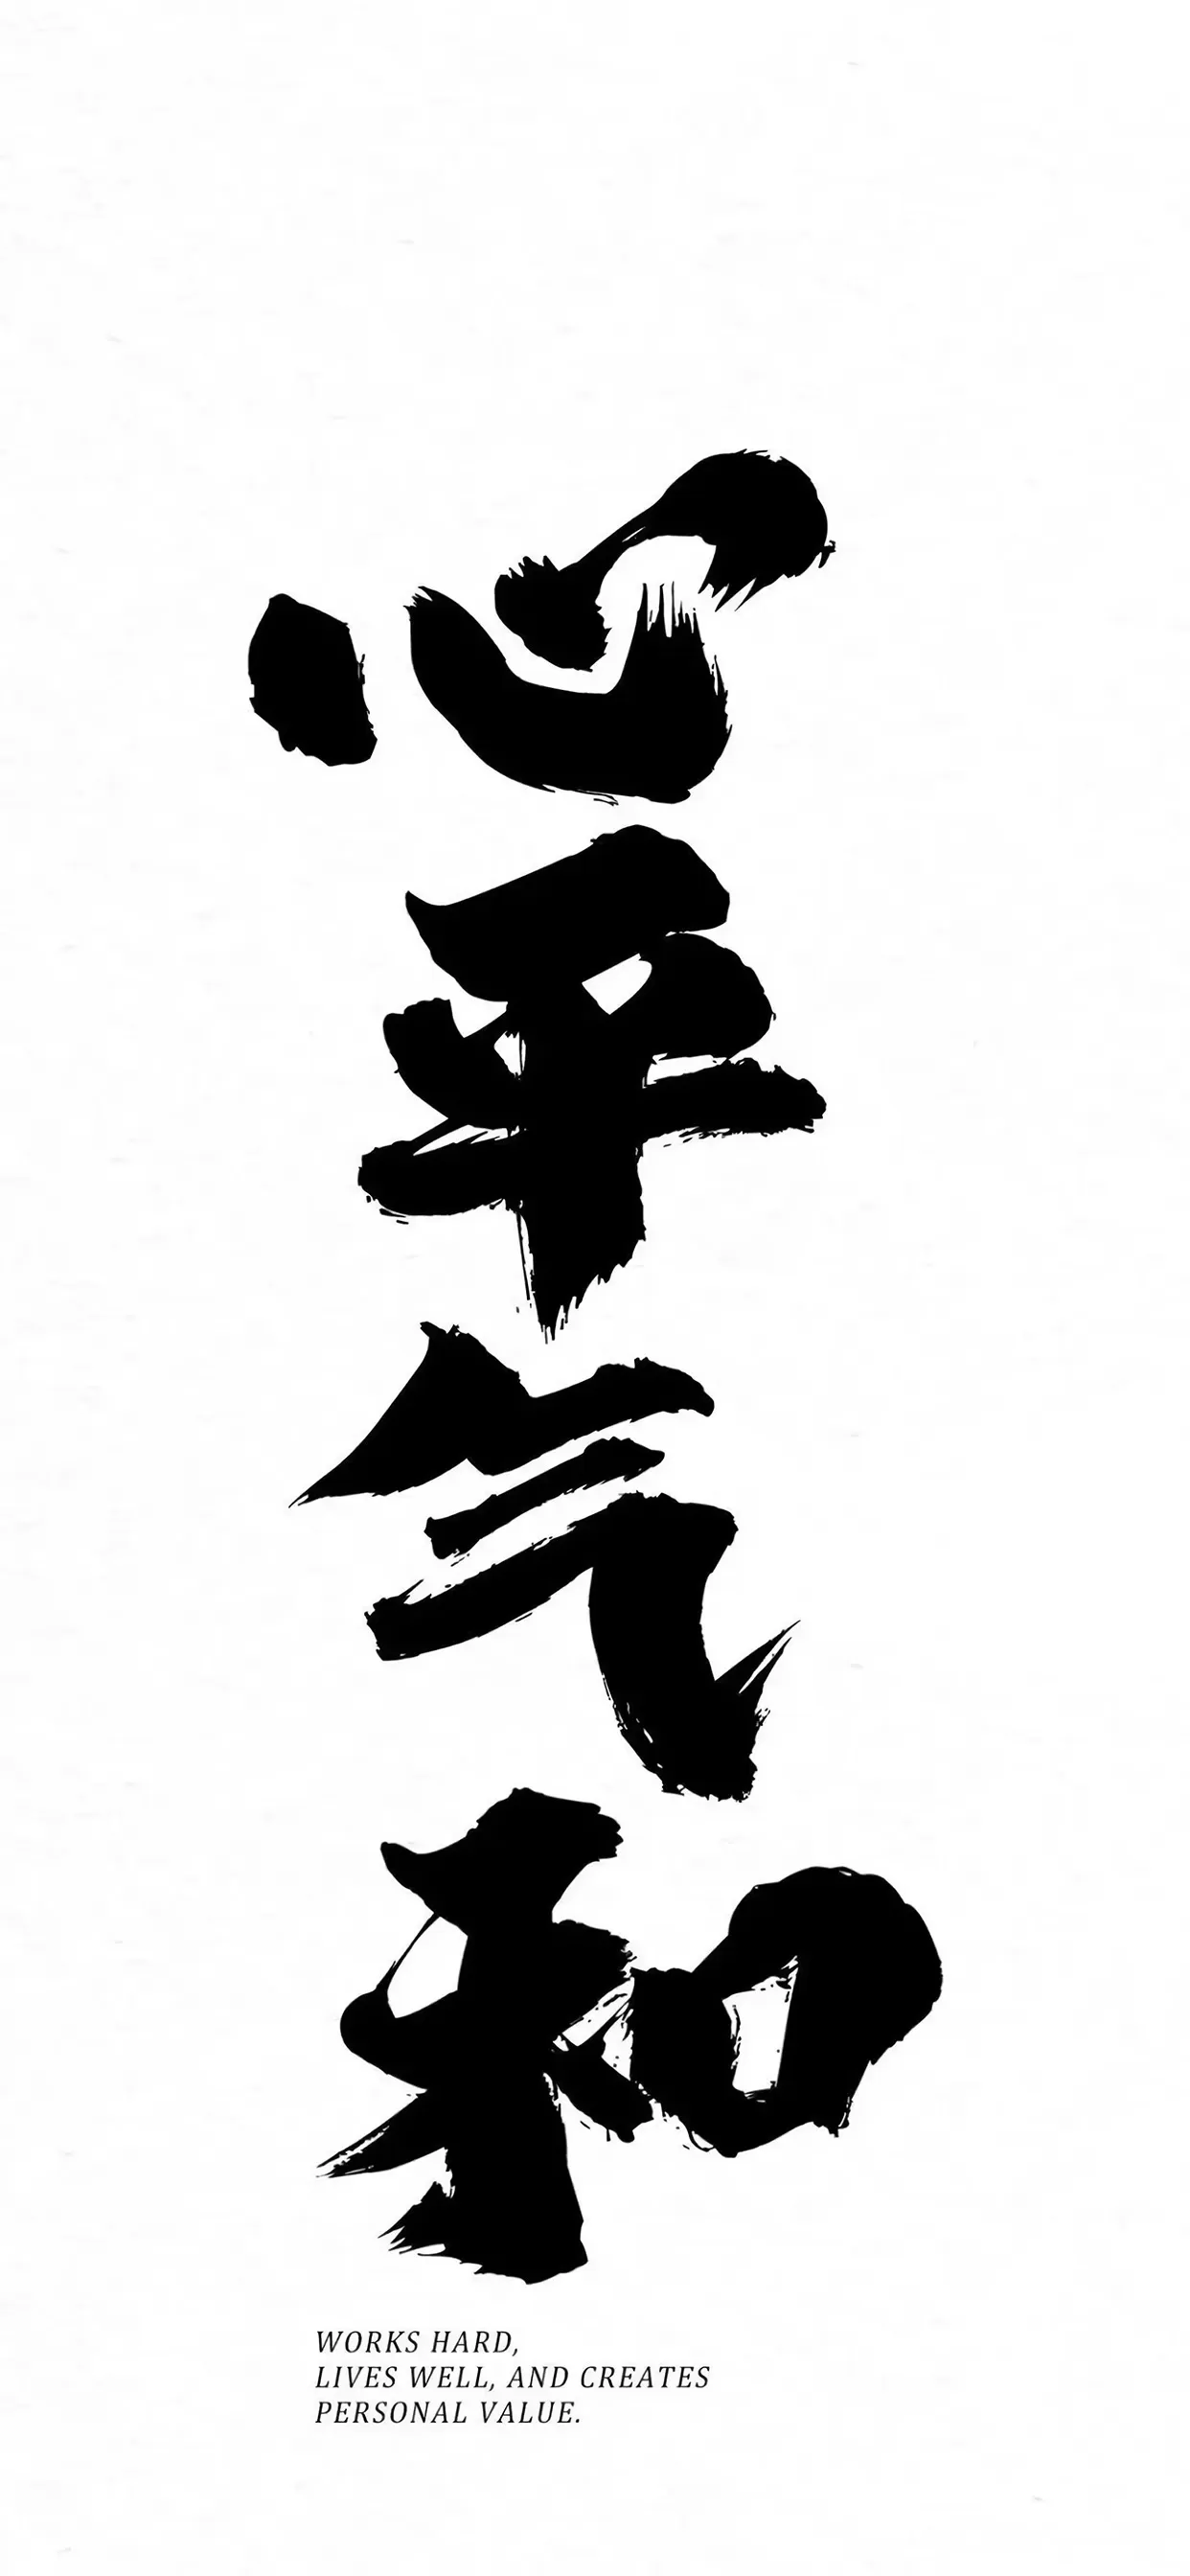 心平气和
WORKS HARD,
LIVES WELL, AND CREATES
PERSONAL VALUE.